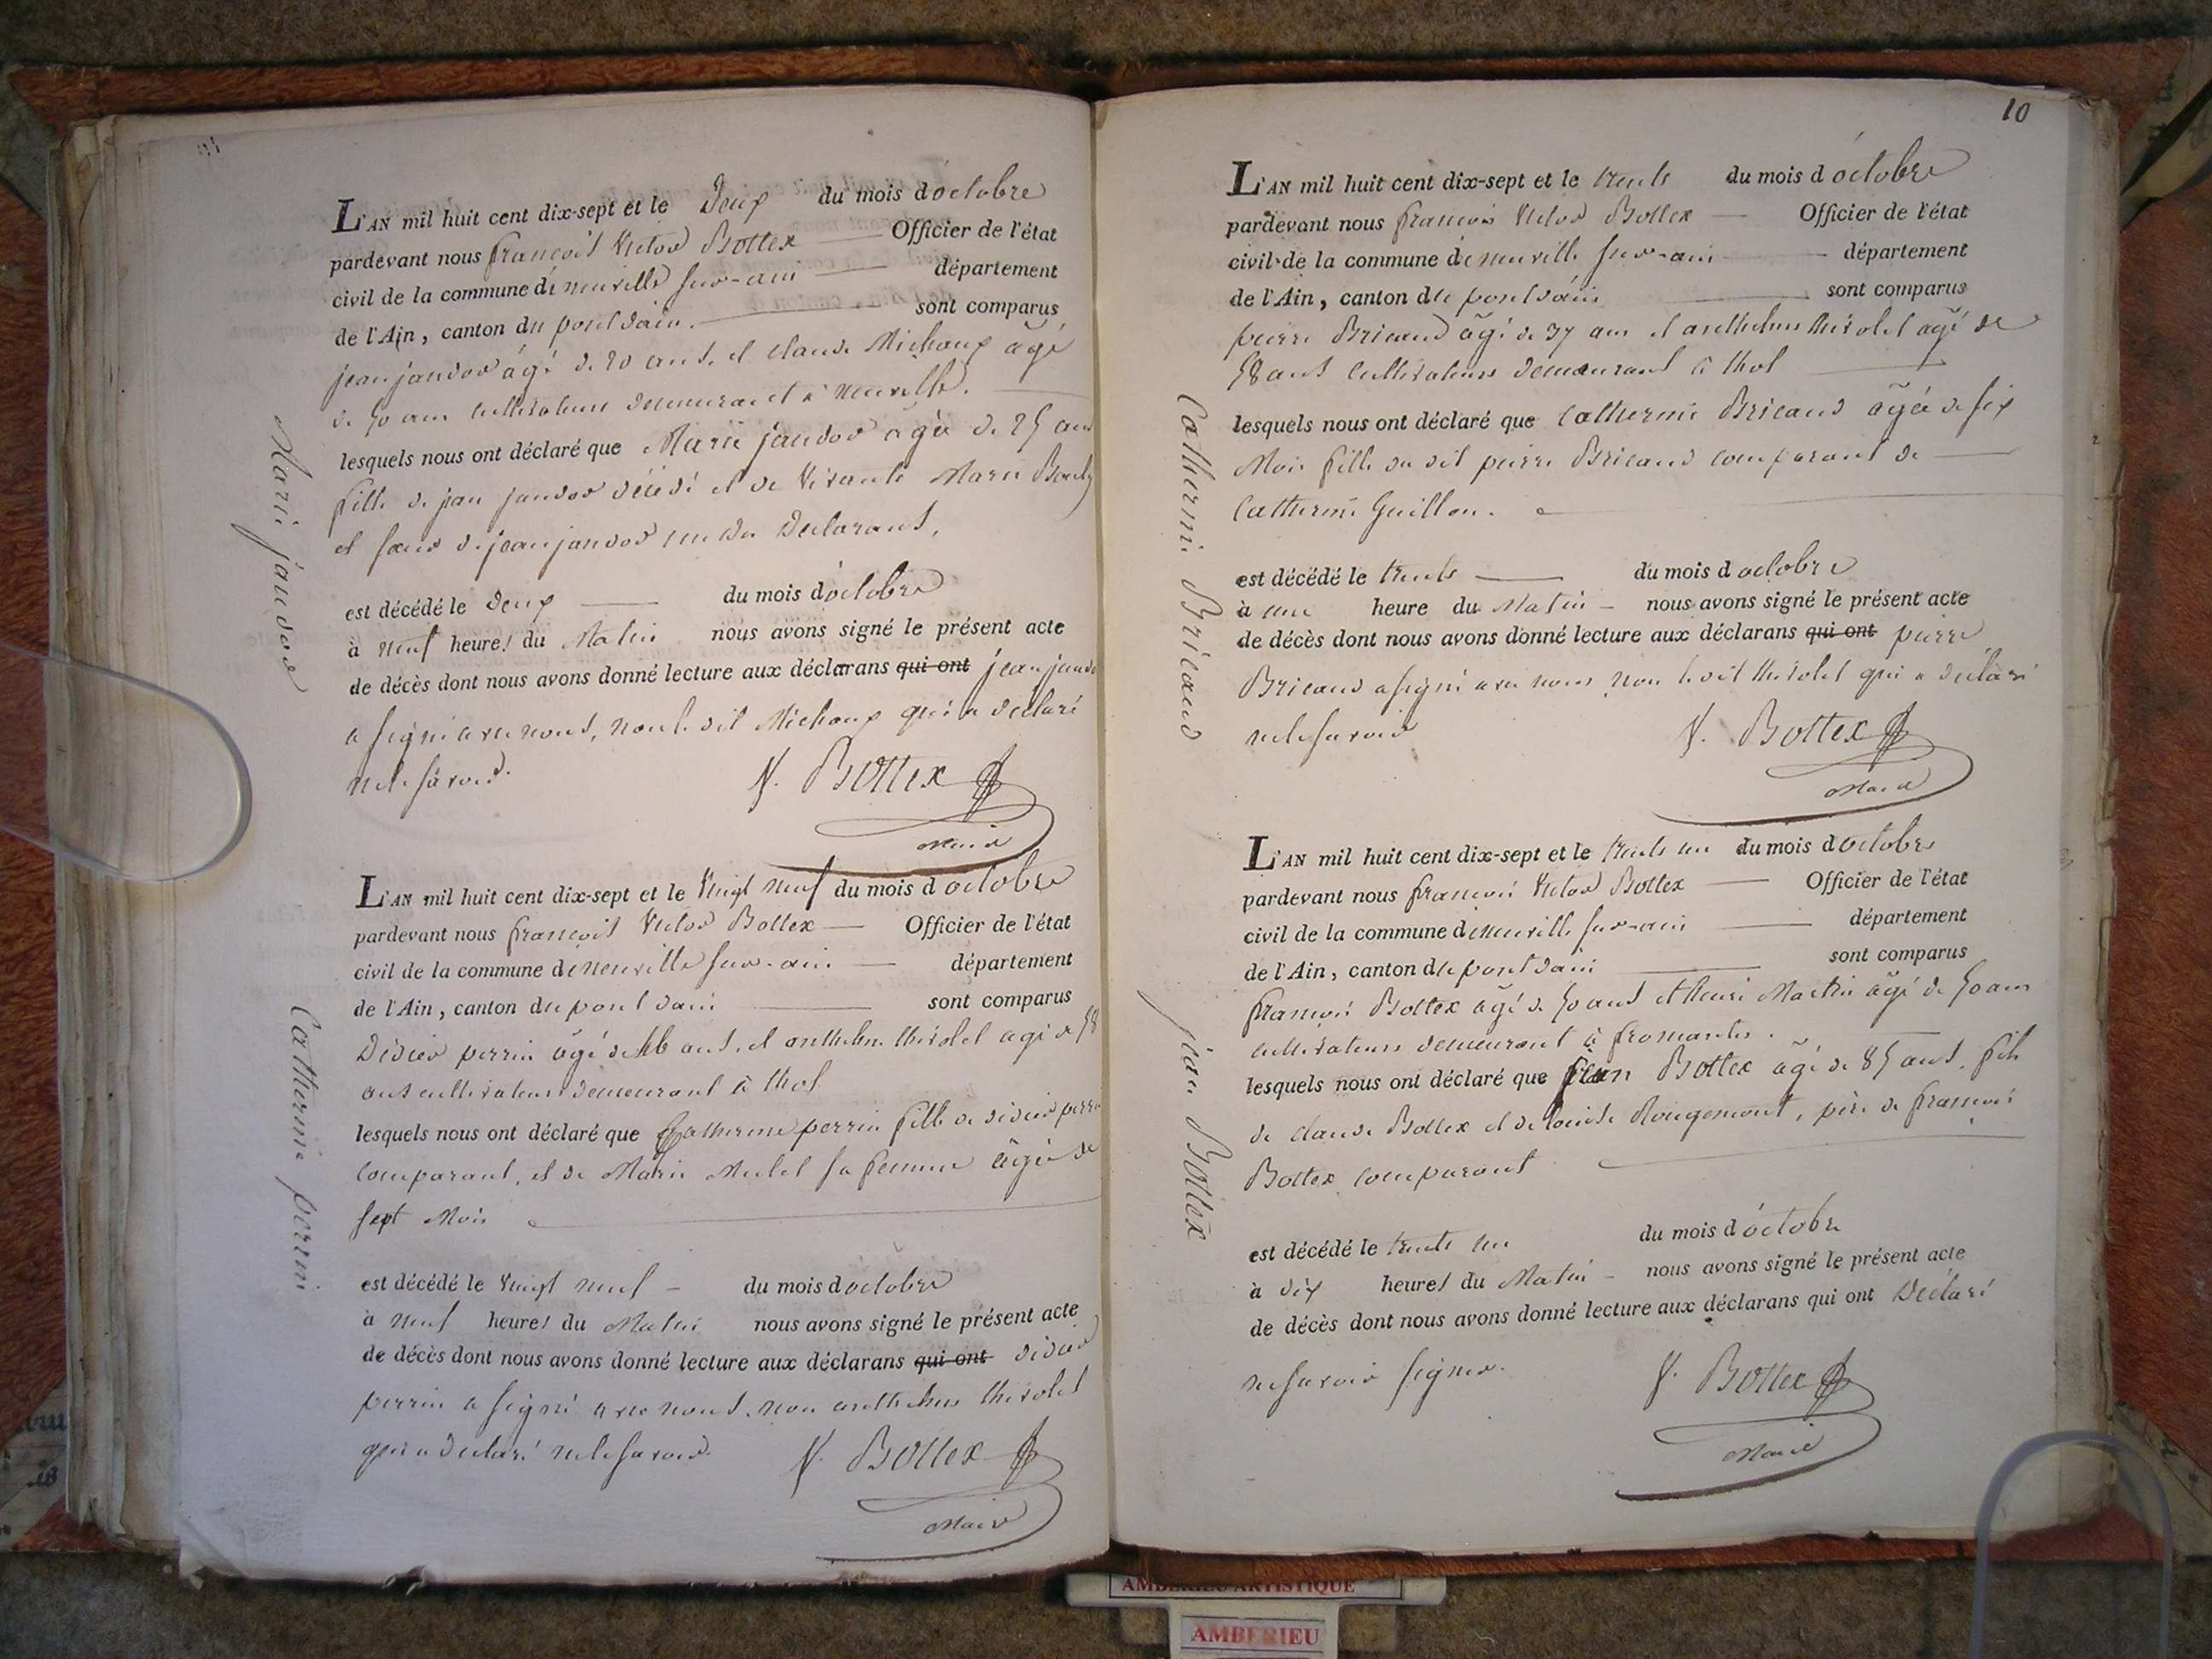 L'AN mil huit cent dix-sept et le Deux du mois d octobre
pardevant nous françois Victor Bottex Officier de l'état
civil de la commune de neuville sur-ain département
de l'Ain, canton du pont dain. sont comparus
jean jandor âgé de 20 ans, et claude Michoux agé
de 50 ans cultivateurs demeurant à neuville.
lesquels nous ont déclaré que Marie jandor agée de 25 ans
fille de jean jandor décédé et de vivante Marie
et sœur de jean jandor un des Déclarants,
est décédé le deux du mois d'octobre
à neuf heures du Matin nous avons signé le présent acte
de décès dont nous avons donné lecture aux déclarans qui ont jean jandor
a signé avec nous, non le dit Michoux qui a déclaré
ne le savoir.
V. Bottex
Maire
Marie jandor
L'AN mil huit cent dix-sept et le Vingt neuf du mois d octobre
pardevant nous françois Victor Bottex Officier de l'état
civil de la commune de neuville sur-ain département
de l'Ain, canton du pont dain sont comparus
Didier perrin agé de ans, et anthelme thévolet agé de 58
ans cultivateurs demeurant à thol
lesquels nous ont déclaré que Catherine perrin fille de didier perrin
comparant, et de Marie sa femme âgée de
sept Mois
est décédé le Vingt neuf du mois d octobre
à neuf heures du Matin nous avons signé le présent acte
de décès dont nous avons donné lecture aux déclarans qui ont didier
perrin a signé avec nous, non anthelme thévolet
qui a déclaré ne le savoir.
V. Bottex
Maire
Catherine perrin
10
L'AN mil huit cent dix-sept et le trente du mois d octobre
pardevant nous françois Victor Bottex Officier de l'état
civil de la commune de neuville sur-ain département
de l'Ain, canton du pont dain sont comparus
pierre Bricaud âgé de 37 ans et anthelme thévolet agé de
58 ans cultivateurs demeurant à thol
lesquels nous ont déclaré que Catherine Bricaud âgée de six
Mois fille du dit pierre Bricaud comparant de
Catherine Guillon.
est décédé le trente du mois d octobre
à une heure du Matin nous avons signé le présent acte
de décès dont nous avons donné lecture aux déclarans qui ont pierre
Bricaud a signé avec nous non le dit thévolet qui a déclaré
ne le savoir
V. Bottex
Maire
Catherine Bricaud
L'AN mil huit cent dix-sept et le trente un du mois d octobre
pardevant nous françois Victor Bottex Officier de l'état
civil de la commune de neuville sur-ain département
de l'Ain, canton du pont dain sont comparus
françois Bottex âgé de 50 ans et henri Martin âgé de 50 ans
cultivateurs demeurant à fromantes.
lesquels nous ont déclaré que jean Bottex agé de 85 ans, fils
de claude Bottex et de louise Rougemont, père de françois
Bottex comparant
est décédé le trente un du mois d'octobre
à dix heures du Matin nous avons signé le présent acte
de décès dont nous avons donné lecture aux déclarans qui ont Déclaré
ne savoir signer.
V. Bottex
Maire
jean Bottex
AMBERIEU ARTISTIQUE
AMBERIEU